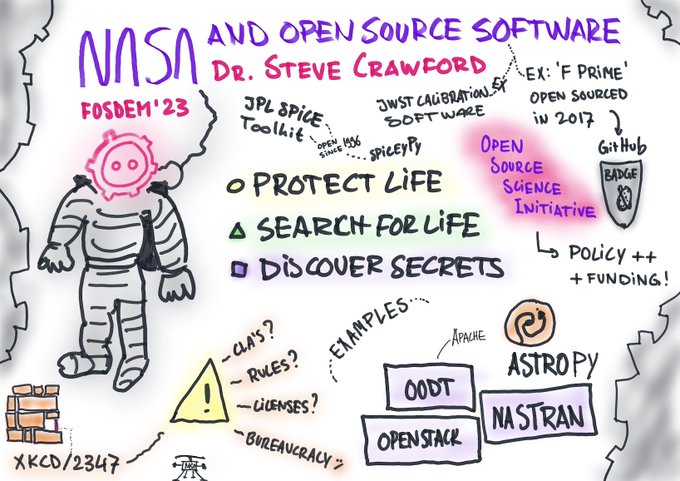 NASA AND OPEN SOURCE SOFTWARE
DR. STEVE CRAWFORD
FOSDEM'23
JPL SPICE
Toolkit
OPEN
SINCE 1996
SPICEyPy
JWST CALIBRATION
SOFTWARE
EX
EX: 'F PRIME'
OPEN SOURCED
IN 2017
GitHub
BADGE
OPEN
SOURCE
SCIENCE
INITIATIVE
POLICY ++
+ FUNDING!
PROTECT LIFE
SEARCH FOR LIFE
DISCOVER SECRETS
EXAMPLES
APACHE
ASTROPY
OODT
NASTRAN
OPENSTACK
!
CLA'S?
RULES?
LICENSES?
BUREAUCRACY
XKCD/2347